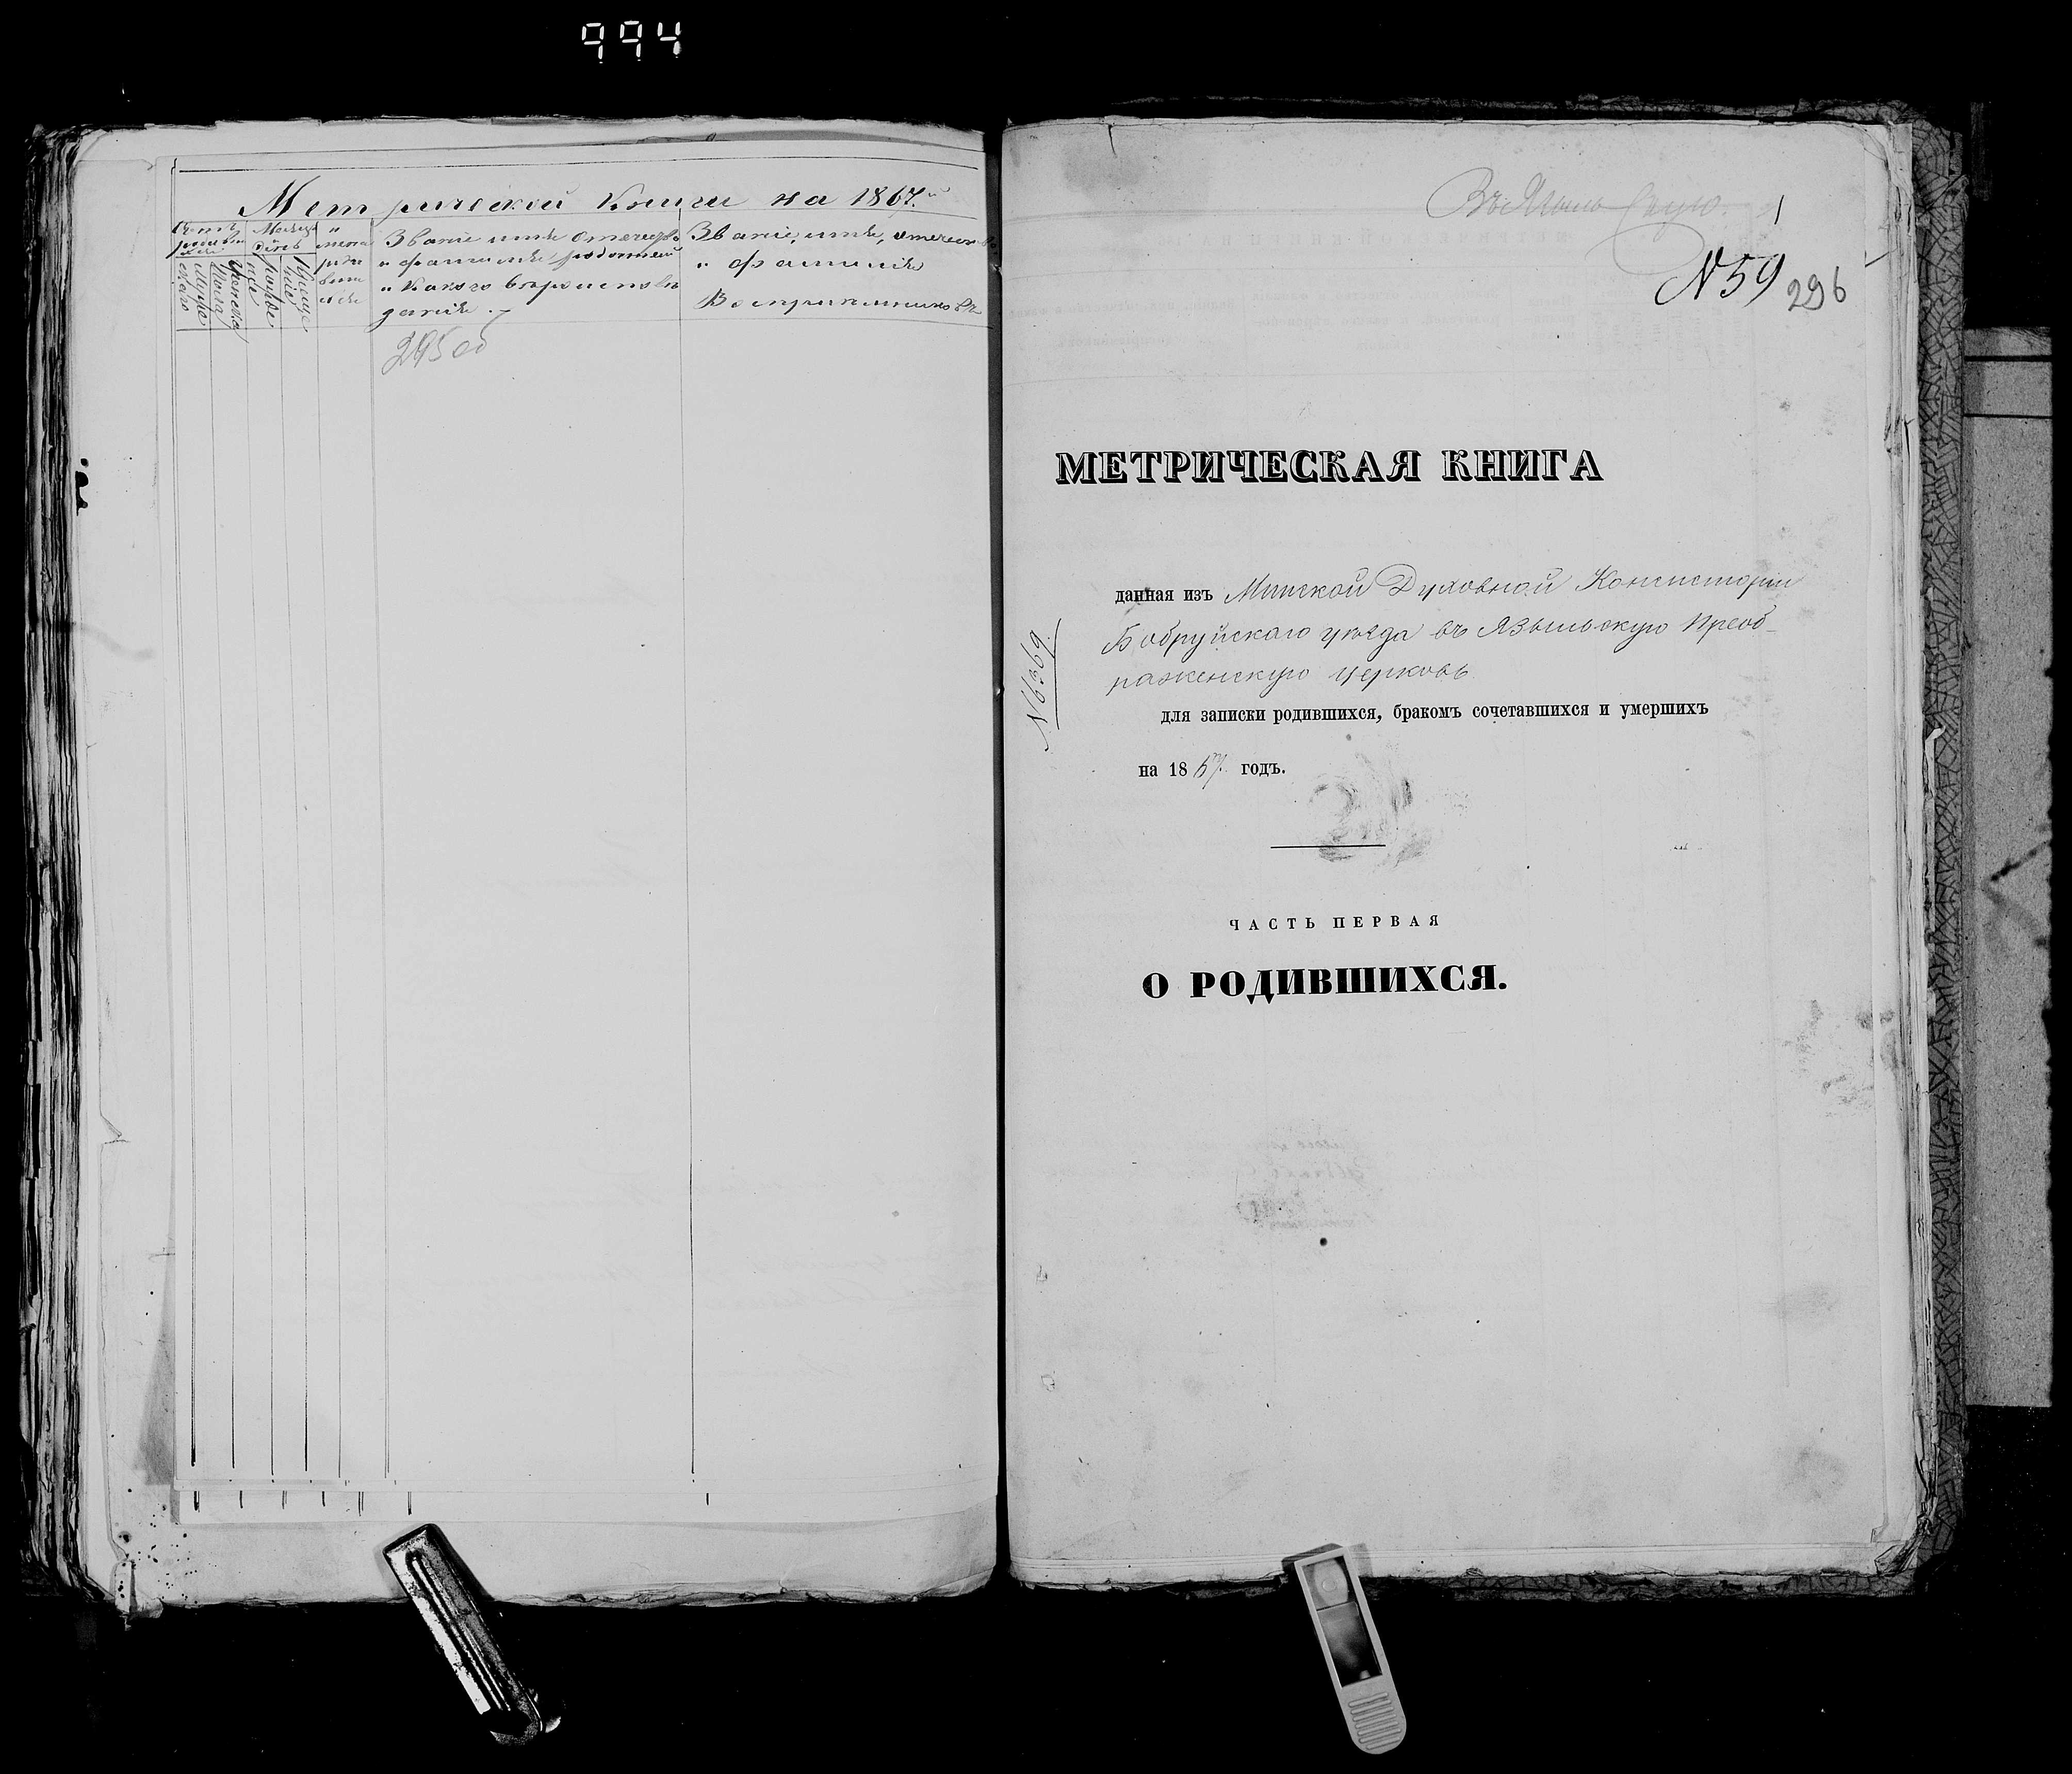 994
Метрической Книги на 1867.й
Счетъ родившихся
Мужеска пола
Женска
Месяцъ и День
Рожденіе
Крещеніе
имена родившихся
Званіе имя отчество
и фамилія, родителей
и какого вероисповѣ
данія.
Званіе, имя, отчество
и фамилія
Воспріемниковъ
295 об
1
№ 59
296
МЕТРИЧЕСКАЯ КНИГА
данная изъ Минской Духовной Консисторіи
Бобруйскаго уѣзда въ Языльскую Преоб-
раженскую церковь
№ 6369.
для записки родившихся, бракомъ сочетавшихся и умершихъ
на 1867 годъ.
ЧАСТЬ ПЕРВАЯ
О РОДИВШИХСЯ.